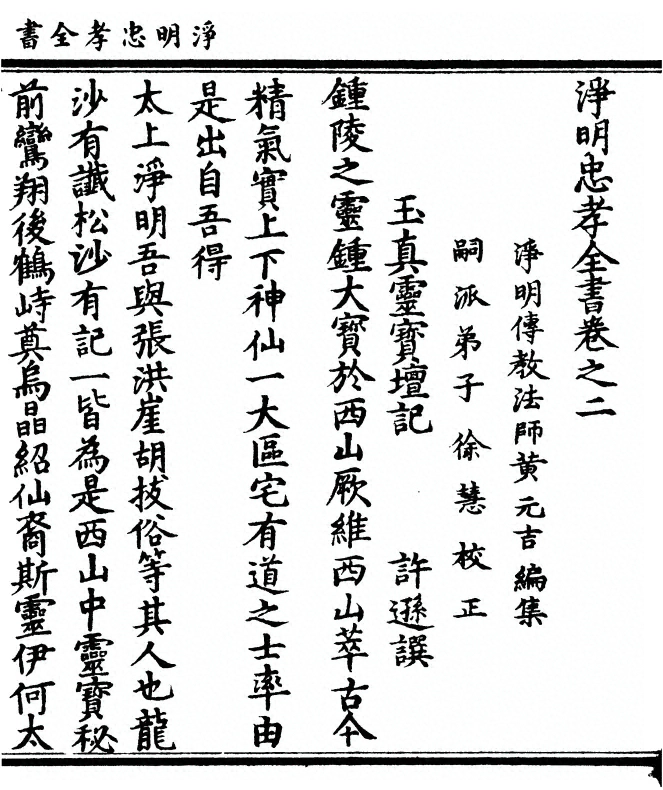 淨明忠孝全書
淨明忠孝全書卷之二
淨明傳教法師黃元吉編集
嗣派弟子徐慧校正
玉真靈寶壇記 許遜譔
鍾陵之靈鍾大寶於西山厥維西山萃古今
精氣實上下神仙一大區宅有道之士率由
是出自吾得
太上淨明吾與張洪崖胡拔俗等其人也龍
沙有讖松沙有記一皆為是西山中靈寶秘
前鸞翔後鶴峙奠烏晶紹仙裔斯靈伊何太